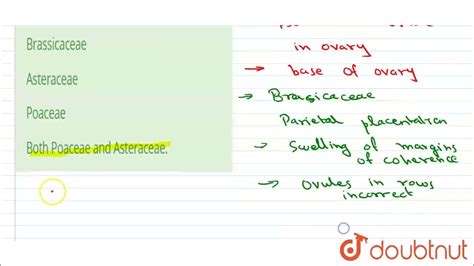 Brassicaceae
Asteraceae
Poaceae
Both Poaceae and Asteraceae.
in ovary
→ base of ovary
→ Brasicaceae
Parietal placentation
→ Swelling of margins
of coherence
→ Ovules in rows
incorrect
doubtnut